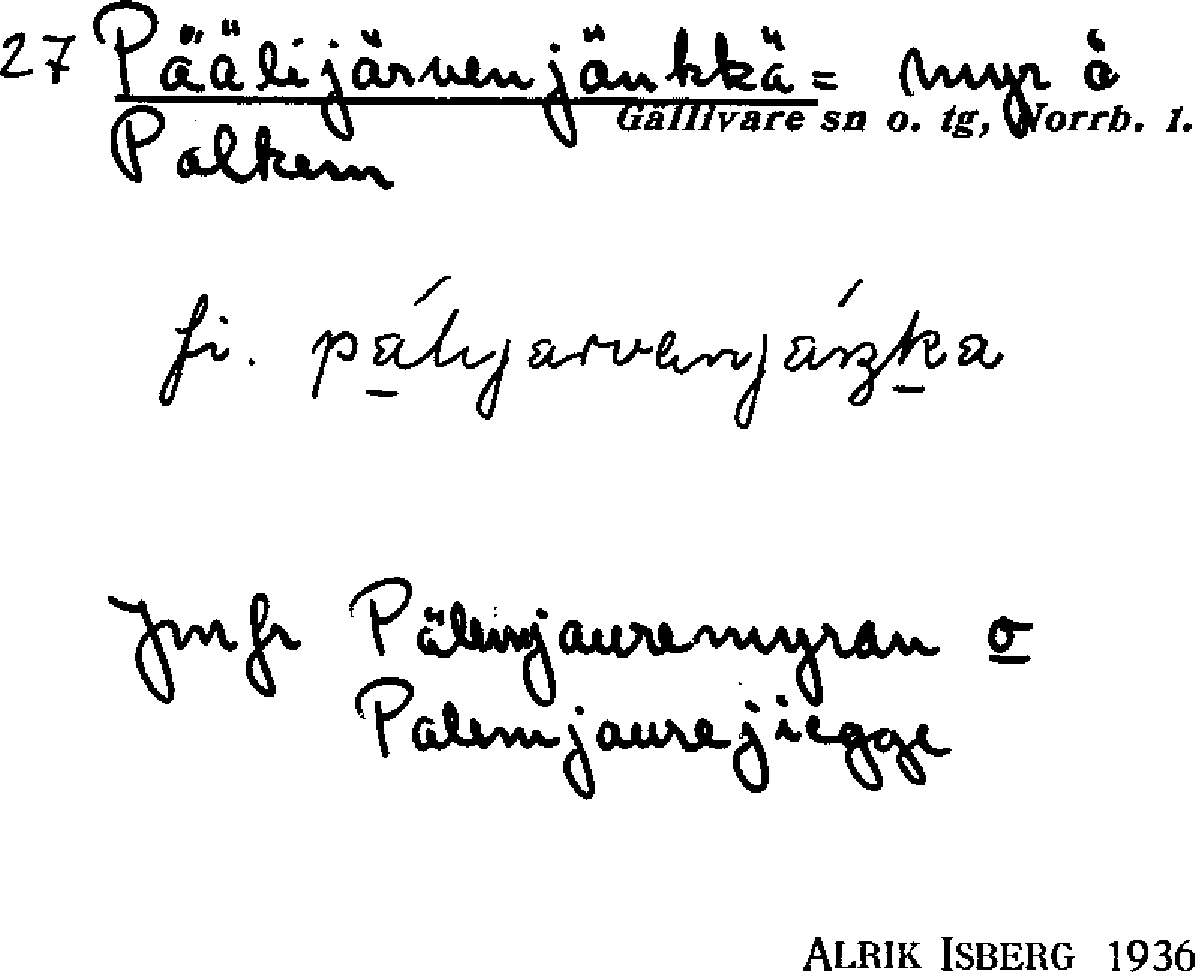 27 Päälijärvenjänkkä = myr å
Gällivare sn o. tg, Norrb. l.
Palkem
fi.
Jmfr Pälemjauremyran o
Palemjaurejiegge
ALRIK ISBERG 1936